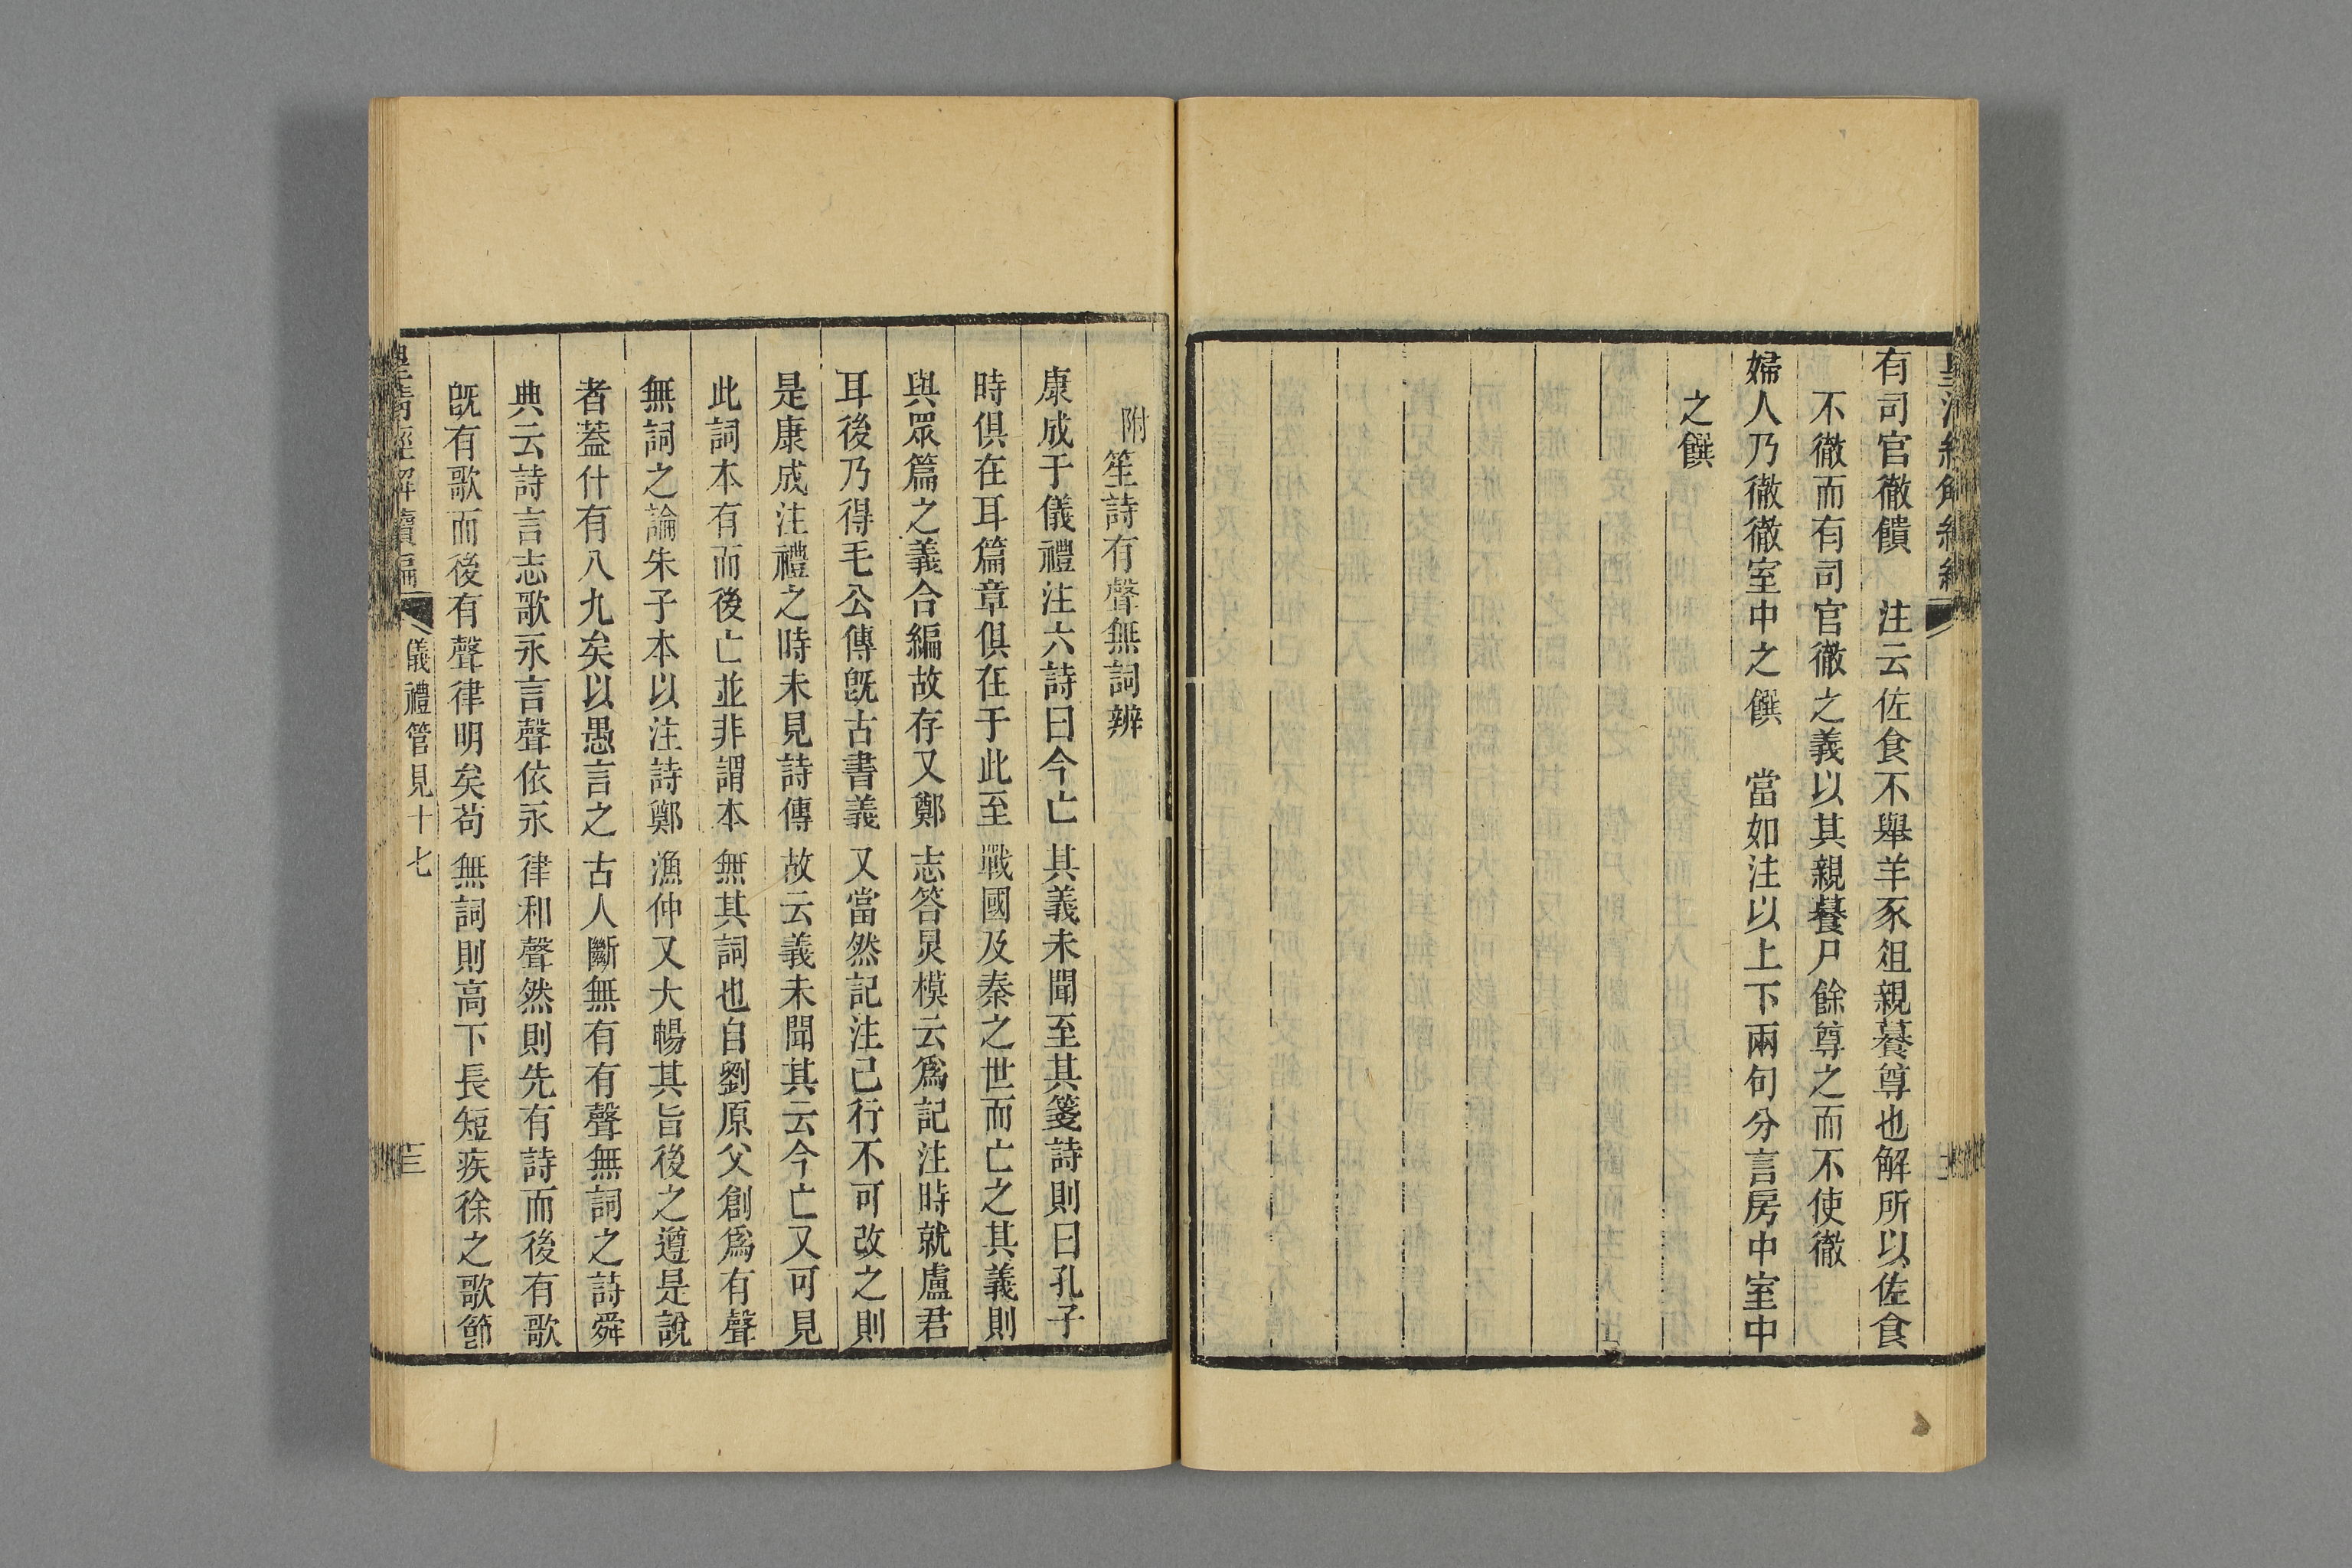 有司官徹饋　注云佐食不舉羊豕俎親餕尊也解所以佐食
不徹而有司官徹之義以其親餕尸餘尊之而不使徹
婦人乃徹徹室中之饌　當如注以上下兩句分言房中室中
之饌
附笙詩有聲無詞辨
康成于儀禮注六詩曰今亡其義未聞至其箋詩則曰孔子
時俱在耳篇章俱在于此至戰國及秦之世而亡之其義則
與眾篇之義合編故存又鄭志答炅模云爲記注時就盧君
耳後乃得毛公傳旣古書義又當然記注己行不可改之則
是康成注禮之時未見詩傳故云義未聞其云今亡又可見
此詞本有而後亡並非謂本無其詞也自劉原父創爲有聲
無詞之論朱子本以注詩鄭漁仲又大暢其旨後之遵是說
者蓋什有八九矣以愚言之古人斷無有有聲無詞之詩舜
典云詩言志歌永言聲依永律和聲然則先有詩而後有歌
旣有歌而後有聲律明矣苟無詞則高下長短疾徐之歌節
皇清經解續編　儀禮管見十七